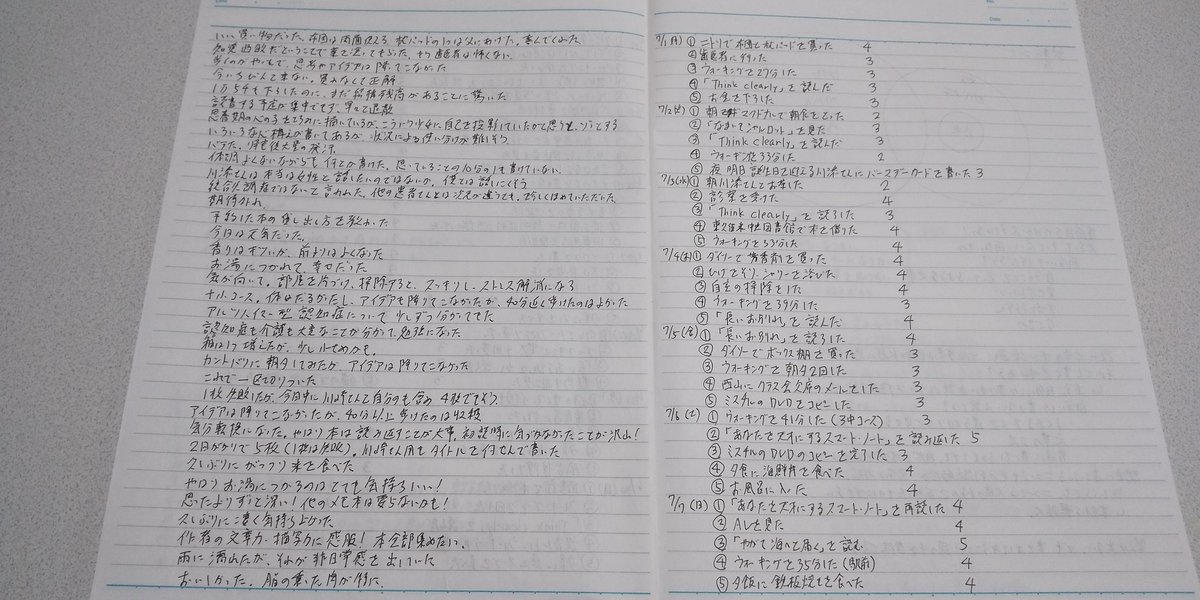 いい買い物だった。布団は両面使える。枕パッドの1つは父にあげた。喜んでくれた
知覚過敏だということで薬を塗ってもらった。もう歯医者は怖くない。
歩くのがやっとで、思考やアイデアは降りてこなかった
今いちピンと来ない。買わなくて正解
10万5千も下ろしたのに、まだ
があることに驚いた
読書する予定が集中できず、早々と退散
思春期の心の
を
に描いているが、こういう少女に自己を投影していたかと思うと、ゾッとする
いろいろな
構えが書いてあるが、状況による使い分けが難しそう
バテた。帰宅後大量の発汗。
体調よくないながらも何とか書けた。思っていることの10分の1も書けていない。
川添さんは本当は女性と話したいのではないか。僕では話しにくそう
統合失調症ではないと言われた。他の患者さんとは状況が違うとも。珍しくほめていただいた
期待外れ。
予約した本の貸し出し方を教わった
今日は元気だった。
香りはキツいが、前よりはよくなった
お湯につかれて、幸せだった
気が向いて。部屋を片づけ、掃除すると、スッキリし、ストレス解消になる
コース。体はだるかったし、アイデアも降りてこなかったが、40分近く歩けたのはよかった
アルツハイマー型認知症について少しずつ分かってきた
認知症も介護も大変なことが分かって、勉強になった
箱は1つ増えたが、少し小さめかも。
に朝夕してみたが、アイデアは降りてこなかった
これで一区切りついた
1枚失敗したが、今日中に川添さんと自分のも含め4枚できそう。
アイデアは降りてこなかったが、40分以上歩けたのは収穫
気分転換になった。やはり本は読み返すことが大事。初読時に気づかなかったことが沢山!
2日がかりで5枚(1枚は失敗)。川添さん用もタイトルを付せんで書いた
久しぶりにがっつり米を食べた
やはりお湯につかるのはとても気持ちいい!
思ったよりずっと深い!他のメモ本は要らないかも!
久しぶりに凄く気持ちよかった
作者の文章力・描写力に感服!本全部集めたい。
雨に濡れたが、それが非日常感を出していた
おいしかった。脂の乗った肉が特に。
7/1(月) ① ニトリで布団と枕パッドを買った 4
② 歯医者に行った 3
③ ウォーキングを27分した 3
④ 「Think clearly」を読んだ 3
⑤ お金を下ろした 3
7/2(火) ① 朝マクドナルドで朝食をとった 2
② 「なまいきシャルロット」を見た 3
③ 「Think clearly」を読んだ 3
④ ウォーキングを33分した 2
⑤ 夜、明日誕生日を迎える川添さんにバースデーカードを書いた 3
7/3(水) ① 朝川添さんとお茶した 2
② 診察を受けた 4
③ 「Think clearly」を読了した 3
④ 東久留米図書館で本を借りた 4
⑤ ウォーキングを53分した 4
7/4(木) ① ダイソーで芳香剤を買った 4
② ひげをそり、シャワーを浴びた 4
③ 自室の掃除をした 4
④ ウォーキングを39分した 3
⑤ 「長いお別れ」を読んだ 4
7/5(金) ① 「長いお別れ」を読了した 4
② ダイソーでボックス棚を買った 3
③ ウォーキングを朝夕2回した 3
④ 西山にクラス会欠席のメールをした 3
⑤ ミスチルのDVDをコピーした 3
7/6(土) ① ウォーキングを41分した(3中コース) 3
② 「あなたを天才にするスマート・ノート」を読み返した 5
③ ミスチルのDVDのコピーを完了した 3
④ 夕食に海鮮丼を食べた 4
⑤ お風呂に入った 4
7/7(日) ① 「あなたを天才にするスマート・ノート」を再読した 4
② ALを見た 4
③ 「やがて海へと届く」を読む 5
④ ウォーキングを35分した(駅前) 4
⑤ 夕飯に鉄板焼きを食べた 4